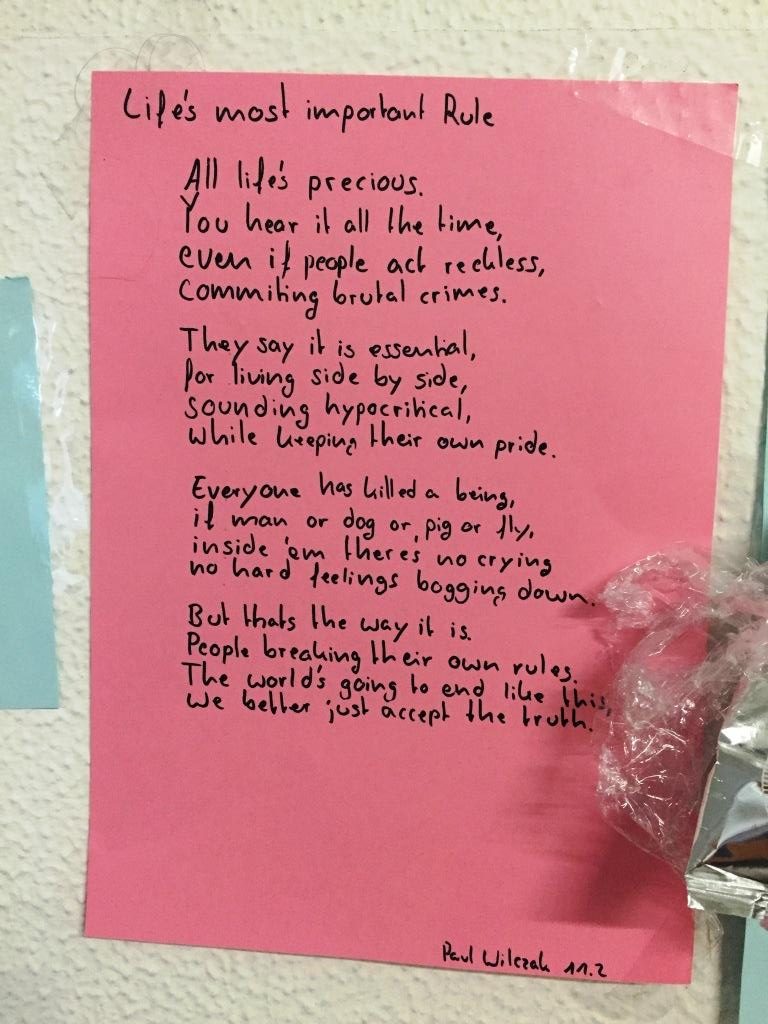 Life's most important Rule
All life's precious.
You hear it all the time,
even if people act reckless,
commiting brutal crimes.
They say it is essential,
for living side by side,
sounding hypocritical,
while keeping their own pride.
Everyone has killed a being,
if man or dog or pig or fly,
inside 'em theres no crying
no hard feelings bogging down.
But thats the way it is.
People breaking their own rules.
The world's going to end like this,
we better just accept the truth.
Paul Wilczak 11.2